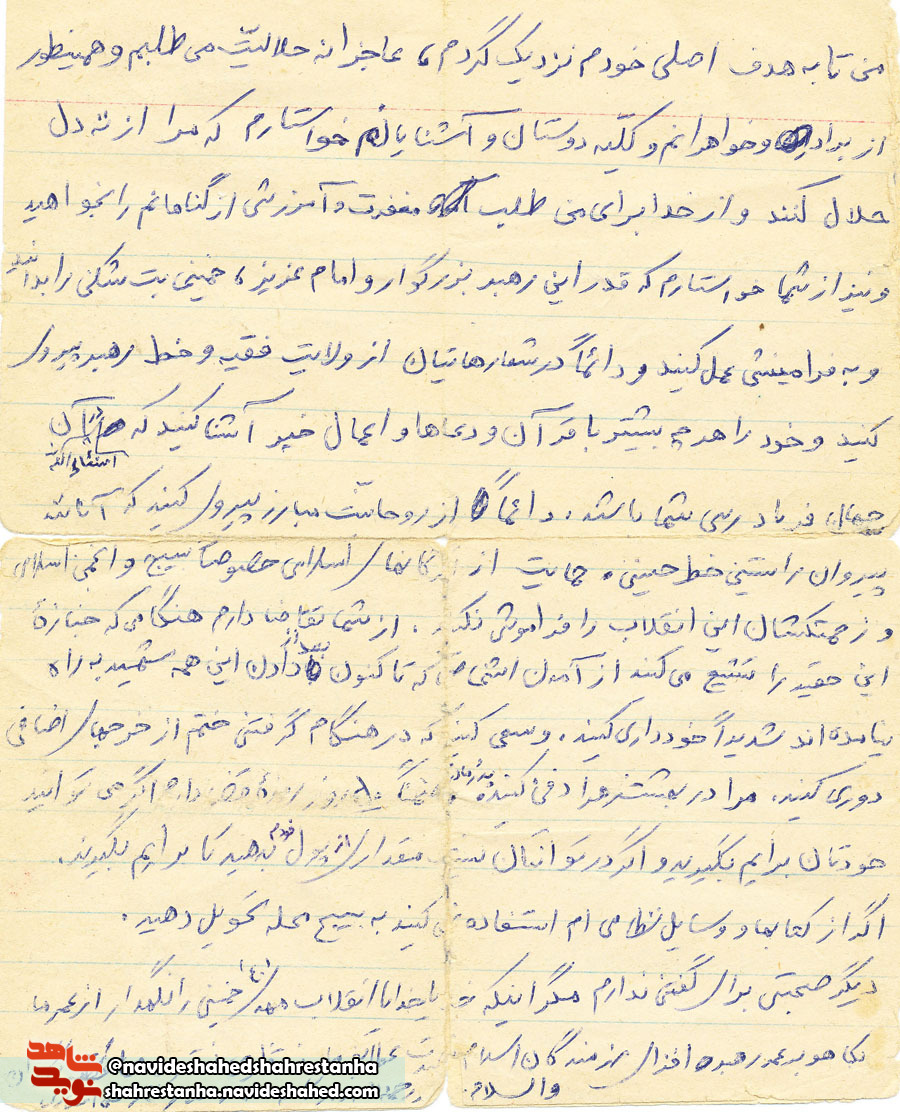 من تا به هدف اصلی خودم نزدیک گردم، عاجزانه حلالیّت می طلبم و همینطور
از برادر و خواهرانم و کلّیه دوستان و آشنایانم خواستارم که مرا از ته دل
حلال کنند و از خدا برای من طلب مغفرت و آمرزش از گناهانم را بخواهید
و نیز از شما خواستارم که قدر این رهبر بزرگوار و امام عزیز، خمینی بت شکن را بدانید
و به فرامینش عمل کنید و دائماً در شعارهایتان از ولایت فقیه و خط رهبر پیروی
کنید و خود را هر چه بیشتر با قرآن و دعاها و اعمال خیر آشنا کنید که در آن
انشاءالله
جهان فریادرس شما باشد. دائماً از روحانیّت مبارز پیروی کنید که آنانند
پیروان راستین خط حسینی. حمایت از اسلامی خصوصاً بسیج و انجمن اسلامی
و زحمتکشان این انقلاب را فراموش نکنید. از شما تقاضا دارم هنگامی که جنازهٔ
این حقیر را تشییع می کنند از آمدن که تا کنون با دادن این همه شهید به راه
نیامده اند شدیداً خودداری کنید. و سعی کنید که در هنگام گرفتن ختم از خرجهای اضافی
دوری کنید. مرا در بهشت زهرا دفن کنید. ضمناً روز روزهٔ قرض دارم اگر می توانید
خودتان برایم بگیرید و اگر در توانتان نیست مقداری از پول خودم بدهید تا برایم بگیرند.
اگر از کتابها و وسایل نظامی ام استفاده نمی کنید به بسیج محله تحویل دهید.
دیگر صحبتی برای گفتن ندارم مگر اینکه خدایا خدایا تا انقلاب مهدی خمینی را نگهدار از عمر ما
بکاه و بر عمر رهبر افزا رزمندگان اسلام
والسلام
شاهد
نوید
@navideshahedshahrestanha
shahrestanha.navideshahed.com